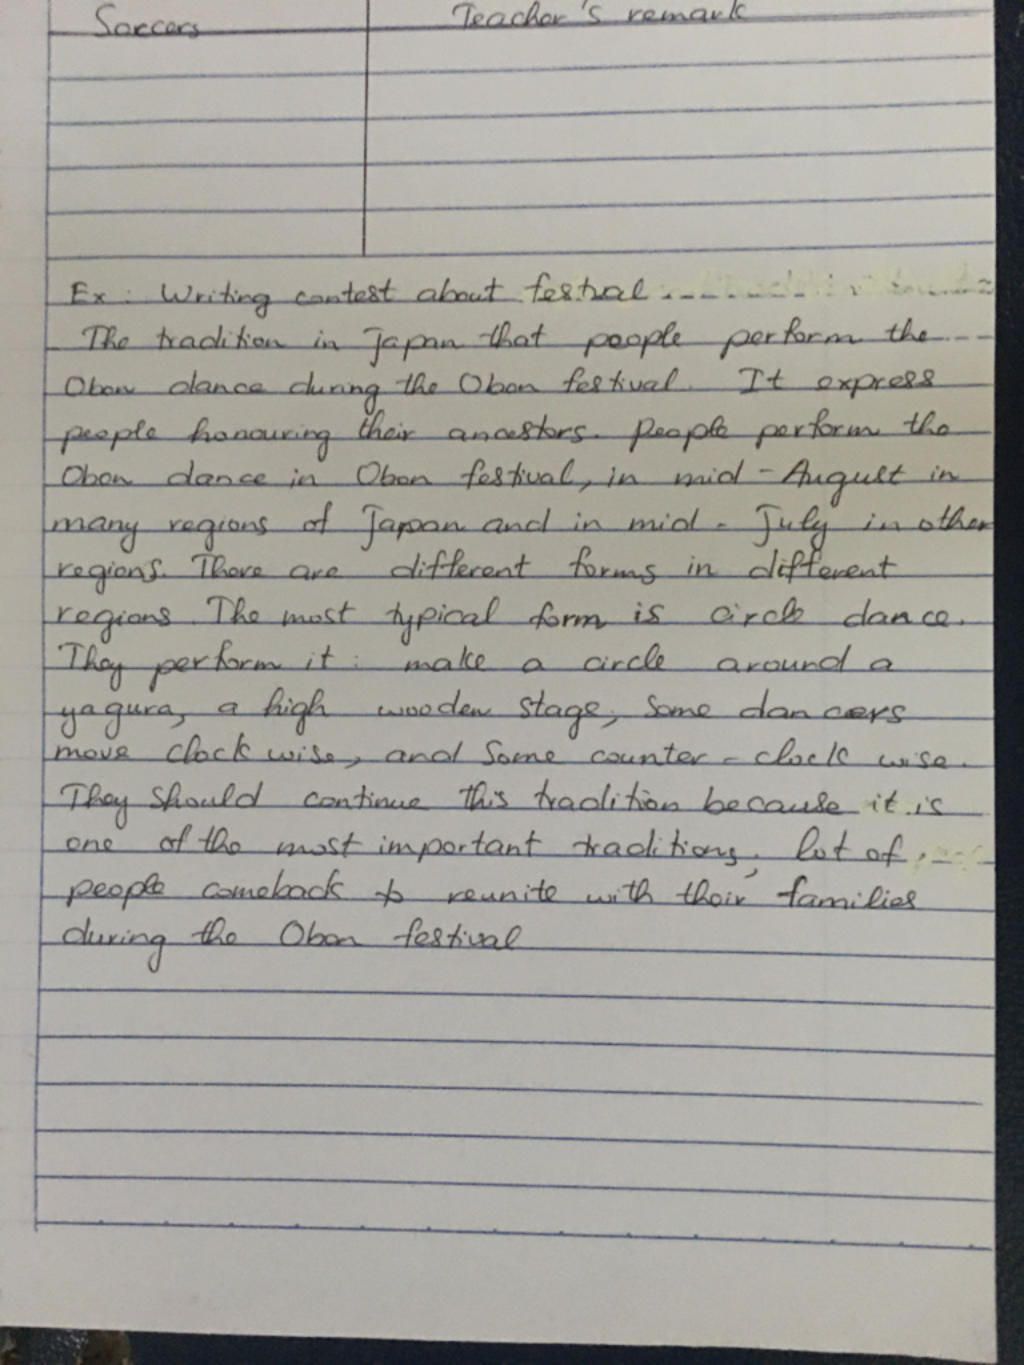 Soccers Teacher's remark
Ex: Writing contest about festival
The tradition in Japan that people perform the
Obon dance during the Obon festival. It express
people honouring their ancestors. People perform the
Obon dance in Obon festival, in mid - August in
many regions of Japan and in mid - July in other
regions. There are different forms in different
regions. The most typical form is circle dance.
They perform it: make a circle around a
yagura, a high wooden stage, Some dancers
move clock wise, and Some counter - clock wise.
They should continue this tradition because it is
one of the most important traditions, lot of
people comeback to reunite with their families
during the Obon festival